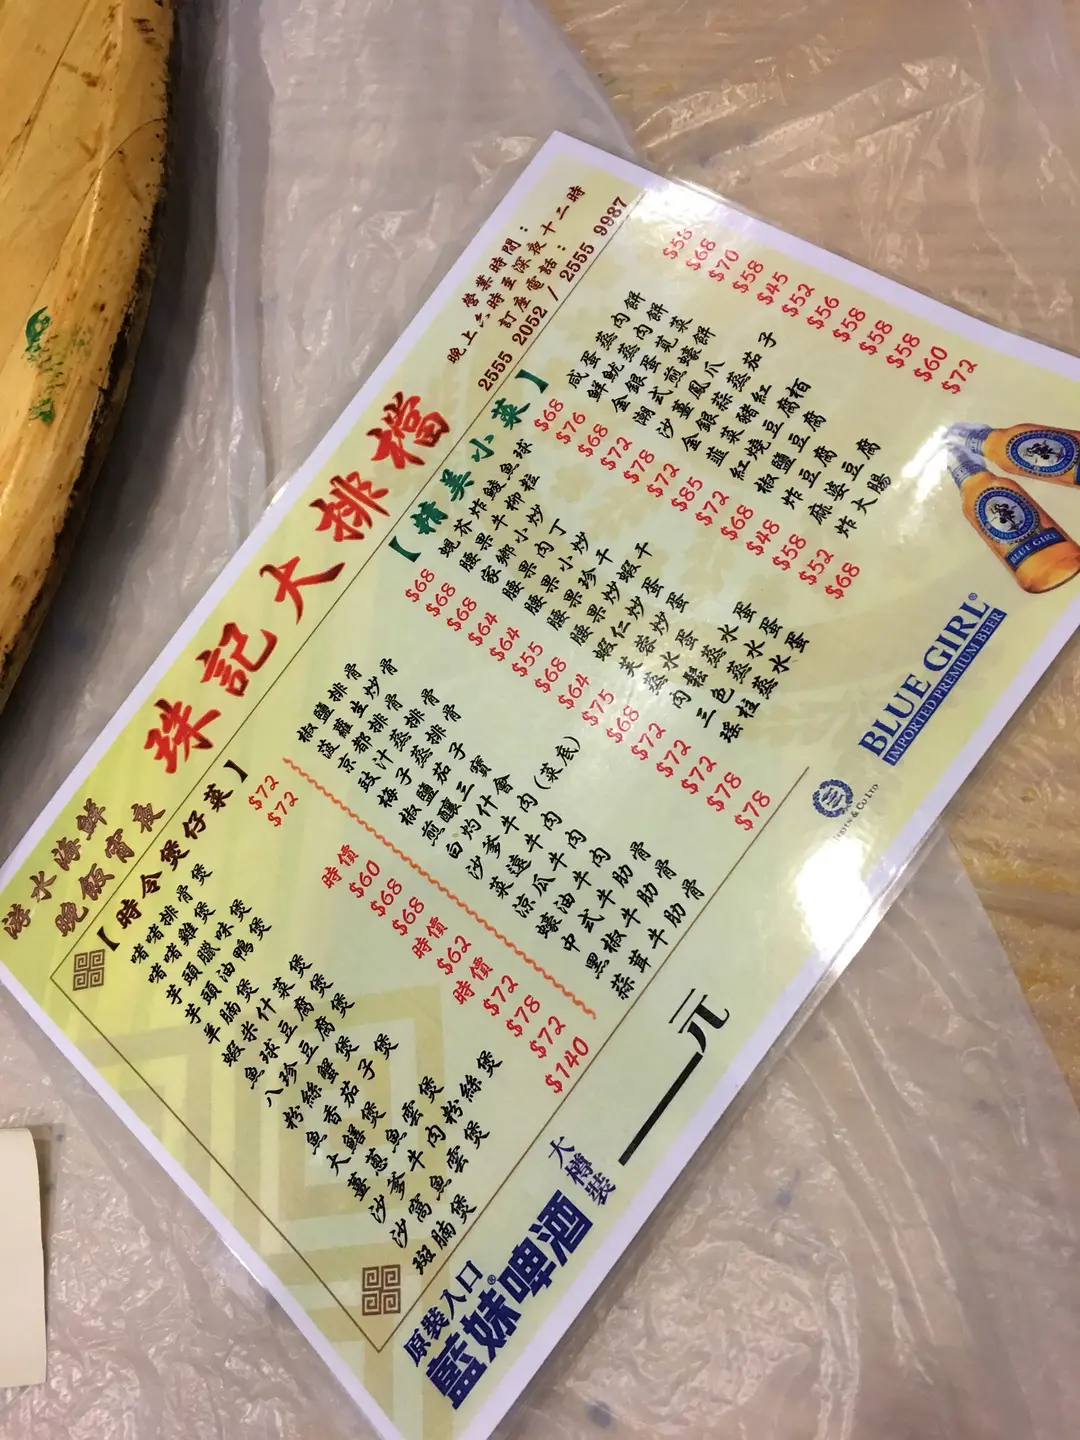 游水海鮮
晚飯宵夜
珠記大排檔
營業時間：
晚上六時至深夜十二時
訂座電話：
2555 2052 / 2555 9987
【時令煲仔菜】
啫啫排骨煲 $72
啫啫雞煲 $72
芋頭臘味煲
芋頭油鴨煲
羊腩煲 時價
蝦米什菜煲 $60
魚球豆腐煲 $68
八珍豆腐煲 $68
粉絲蟹煲 時價
魚香茄子煲 $62
大鱔煲 時價
薑蔥魚雲煲 $72
沙爹牛肉粉絲煲 $78
沙窩魚雲煲 $72
斑腩煲 $140
【精美小菜】
椒鹽排骨 $68
菠蘿生炒骨 $68
京都排骨 $68
豉汁蒸排骨 $64
梅子蒸排骨 $64
椒鹽茄子 $55
煎釀三寶 $68
白灼什會 $64
沙爹牛肉(菜底) $75
菜遠牛肉 $68
涼瓜牛肉 $72
蠔油牛肉 $72
中式牛肋骨 $72
黑椒牛肋骨 $78
蒜茸牛肋骨 $78
蜆芥炸鯪魚球 $68
腰果牛柳粒 $76
家鄉小炒 $68
腰果肉丁 $72
腰果小炒 $78
腰果珍干 $72
腰果炒蝦干 $85
蝦仁炒蛋 $72
芙蓉炒蛋 $68
蒸水蛋 $48
肉鬆蒸水蛋 $58
三色蒸水蛋 $52
瑤柱蒸水蛋 $68
咸蛋蒸肉餅 $58
鮮魷蒸肉餅 $68
金銀蛋莧菜 $70
潮式煎蠔餅 $58
沙薑鳳爪 $45
金銀蒜蒸茄子 $52
韮菜豬紅 $56
紅燒豆腐栢 $58
椒鹽豆腐 $58
炸豆腐 $58
麻婆豆腐 $60
炸大腸 $72
原裝入口
藍妹®啤酒
大樽裝
元
BLUE GIRL®
IMPORTED PREMIUM BEER
BLUE GIRL
& CO LTD